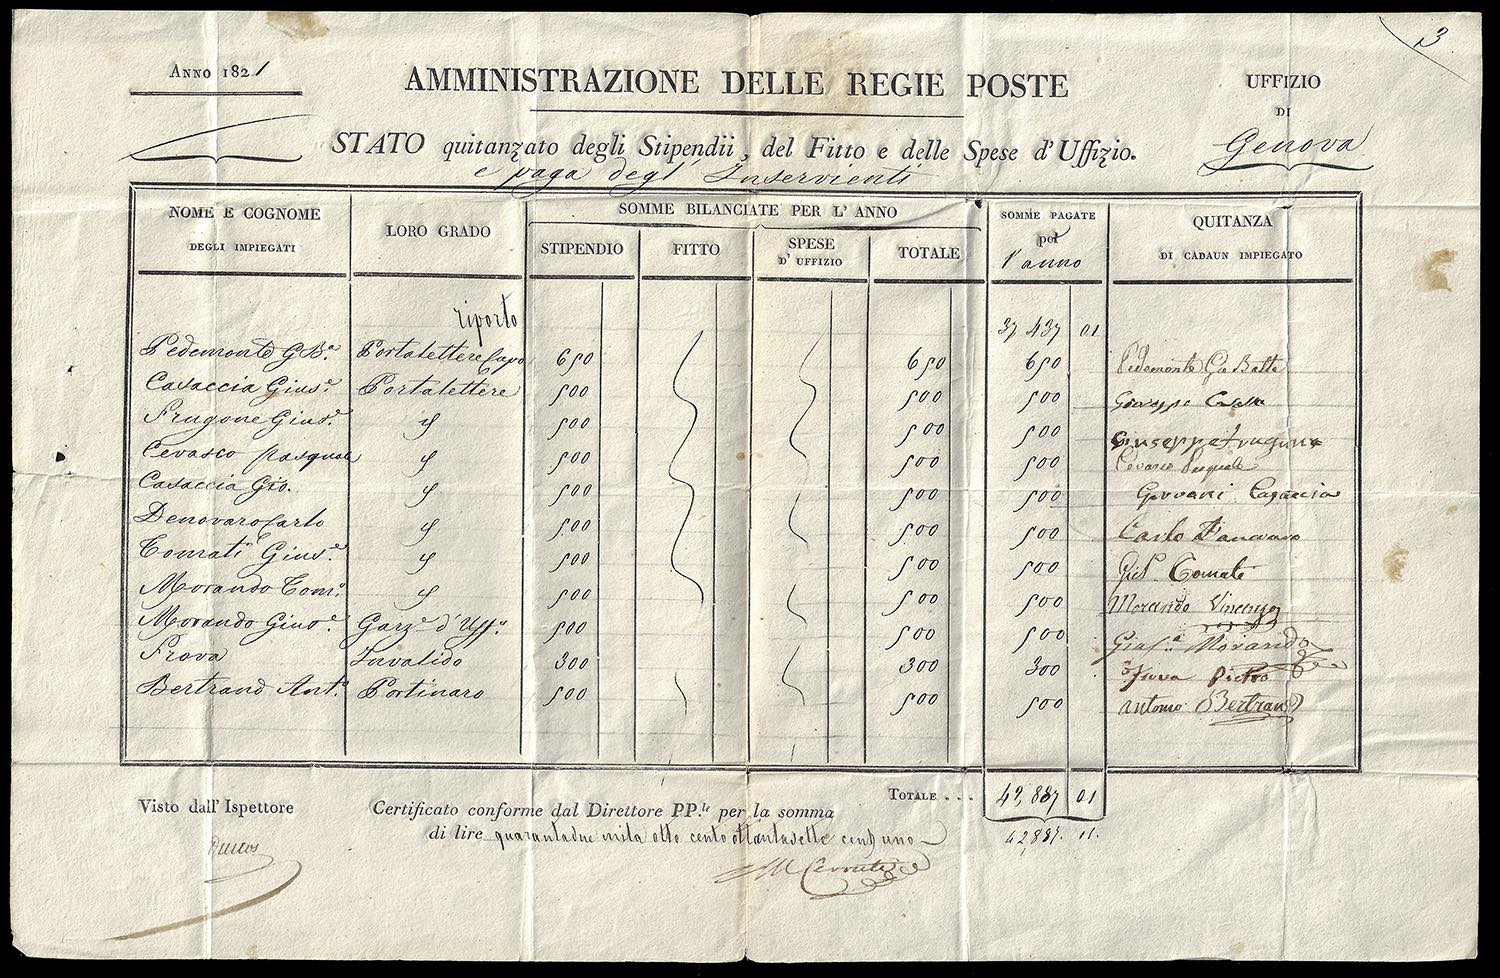 3
ANNO 1821
AMMINISTRAZIONE DELLE REGIE POSTE
UFFIZIO
DI
Genova
STATO quitanzato degli Stipendii, del Fitto e delle Spese d'Uffizio.
e paga degl' Inservienti
NOME E COGNOME
DEGLI IMPIEGATI
LORO GRADO
SOMME BILANCIATE PER L'ANNO
STIPENDIO
FITTO
SPESE
D'UFFIZIO
TOTALE
SOMME PAGATE
per
l'anno
QUITANZA
DI CADAUN IMPIEGATO
riporto 37 437 01
Pedemonte G Bª. Portalettere Capo 650 650 650 Pedemonte Gio Batta
Casaccia Giusᵉ. Portalettere 500 500 500 Giuseppe
Frugone Giusᵉ. 500 500 500 Giuseppe Frugone
Cevasco pasquale 500 500 500 Cevasco Pasquale
Casaccia Gio. 500 500 500 Giovani Casaccia
Denovaro Carlo 500 500 500 Carlo
Tomati Giusᵉ. 500 500 500 Tomati
Morando Tomº. 500 500 500 Morando Vincenzo
Morando Giusᵉ. Garzᵉ d'Uffº. 500 500 500 Morando
Prova Invalido 300 300 300 Prova Pietro
Bertrand Antº. Portinaro 500 500 500 Antonio Bertrand
TOTALE . . . 42,887 01
42,887. 01.
Visto dall'Ispettore
Certificato conforme dal Direttore PP.le per la somma
di lire quarantadue mila otto cento ottantasette cent uno